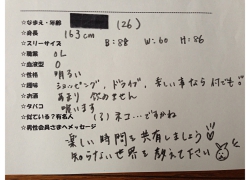 ☆なまえ・年齢 (26)
☆身長 163cm
☆スリーサイズ B:88 W:60 H:86
☆職業 OL
☆血液型 O
☆性格 明るい
☆趣味 ショッピング、ドライブ、楽しい事なら何でも!
☆お酒 あまり飲めません
☆タバコ 吸います
☆似ている?有名人 (?)ネコ…ですかね
☆男性会員さまへメッセージ
楽しい時間を共有しましょう♡
知らない世界を教えて下さい